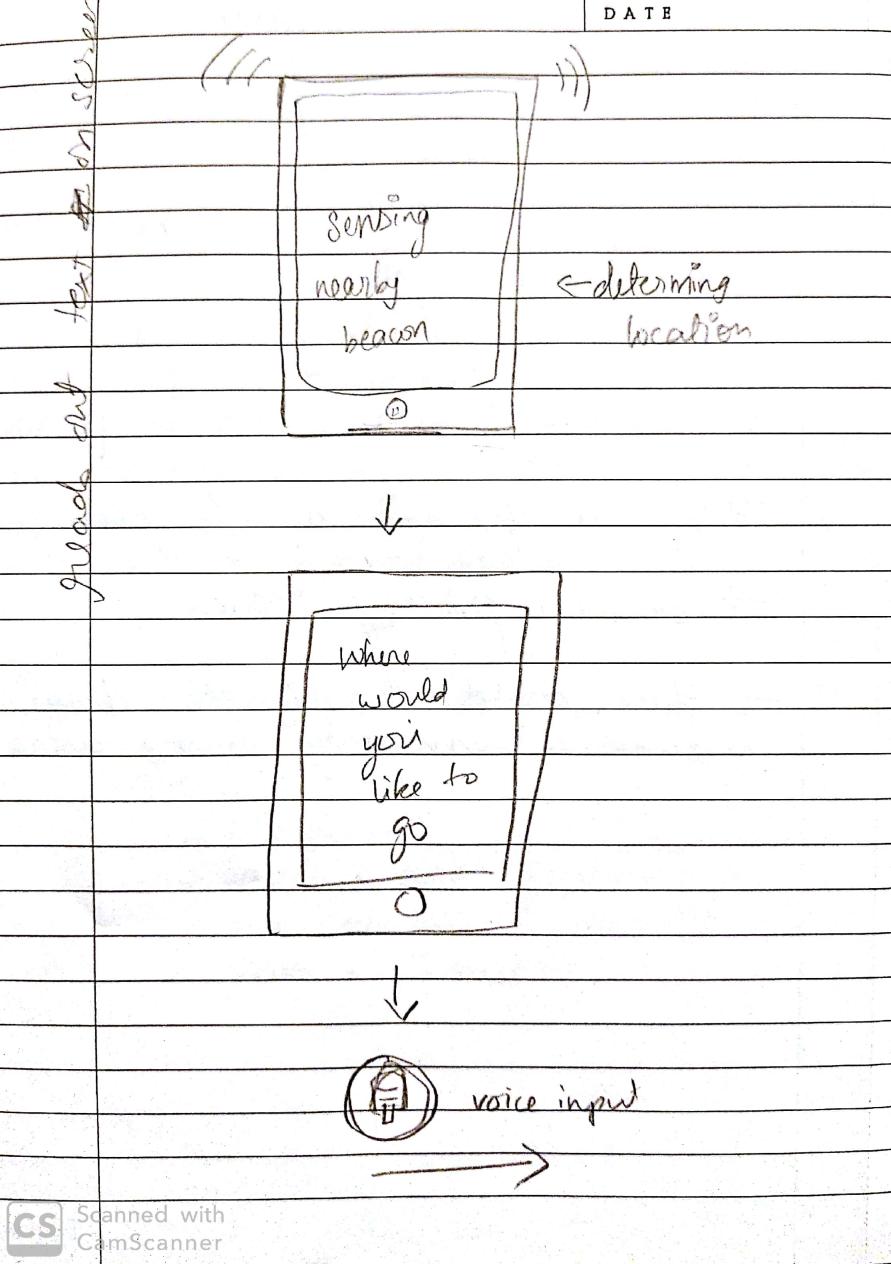 DATE
reads out text on screen
sensing
nearby
beacon
←determing
location
↓
where
would
you
like to
go
↓
voice input
→
CS Scanned with
CamScanner